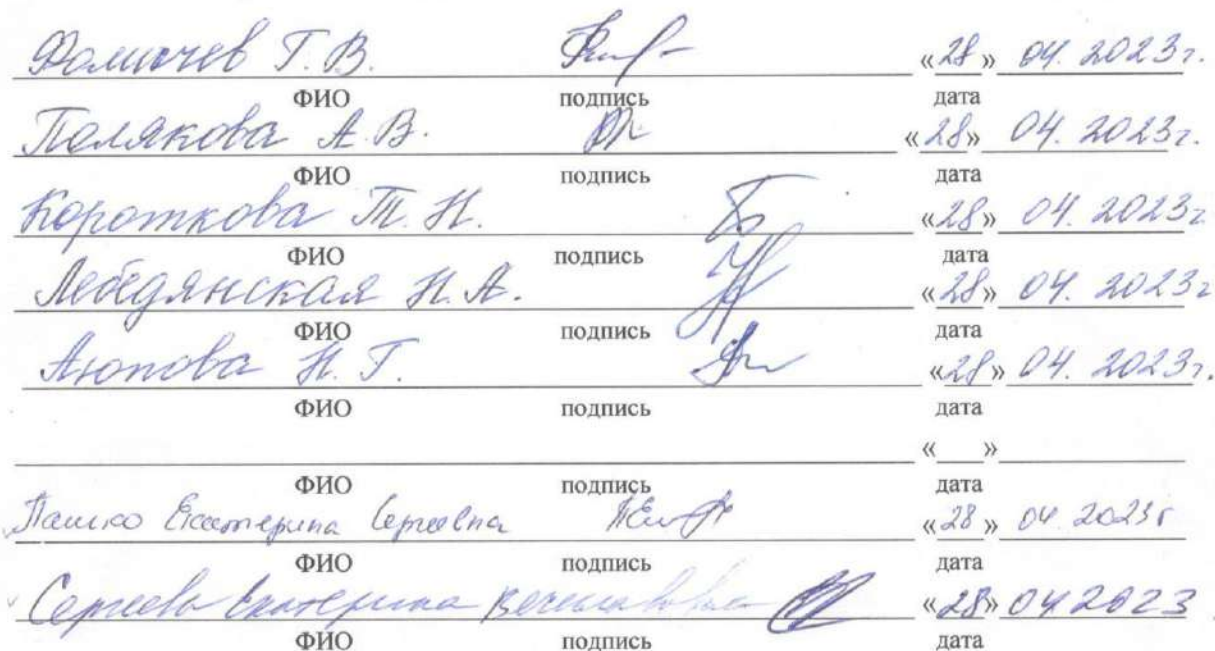 Фомичев Г. В. «28» 04. 2023г.
ФИО подпись дата
Полякова А. В. «28» 04. 2023г.
ФИО подпись дата
Короткова Т. Н. «28» 04. 2023г
ФИО подпись дата
Лебедянская Н. А. «28» 04. 2023г
ФИО подпись дата
Аюпова Н. Г. «28» 04. 2023г.
ФИО подпись дата
« »
ФИО подпись дата
Пашко Екатерина Сергеевна «28» 04. 2023г
ФИО подпись дата
Сергеева Екатерина Вячеславовна «28» 04 2023
ФИО подпись дата